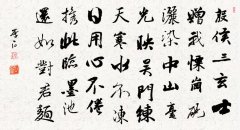 殷侯三玄士
贈我慄崗硯
灑染中山毫
光映吳門練
天寒水不凍
日用心不倦
攜此臨墨池
還如對君麵